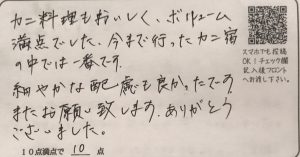 カニ料理もおいしく、ボリューム
満点でした。今まで行ったカニ宿
の中では一番です。
細やかな配慮も良かったです。
またお願い致します。ありがとう
ございました。
10点満点で 10 点
スマホでも投稿
OK!チェック欄
記入後フロント
へお渡し下さい。